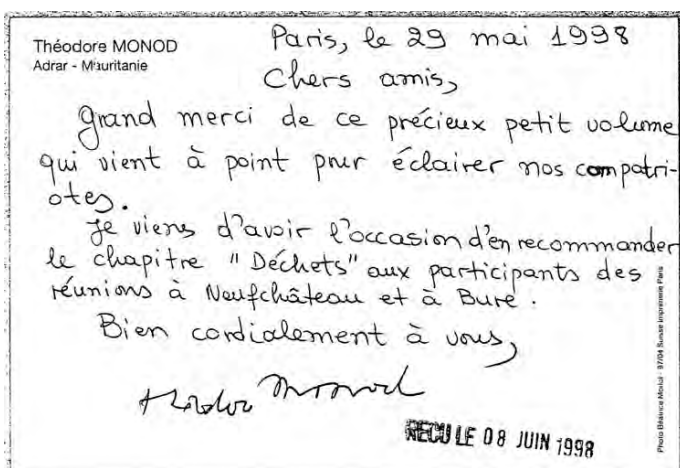 Théodore MONOD
Adrar - Mauritanie
Paris, le 29 mai 1998
Chers amis,
Grand merci de ce précieux petit volume
qui vient à point pour éclairer nos compatri-
otes.
Je viens d'avoir l'occasion d'en recommander
le chapitre "Déchets" aux participants des
réunions à Neufchâteau et à Bure.
Bien cordialement à vous,
Théodore Monod
REÇU LE 08 JUIN 1998